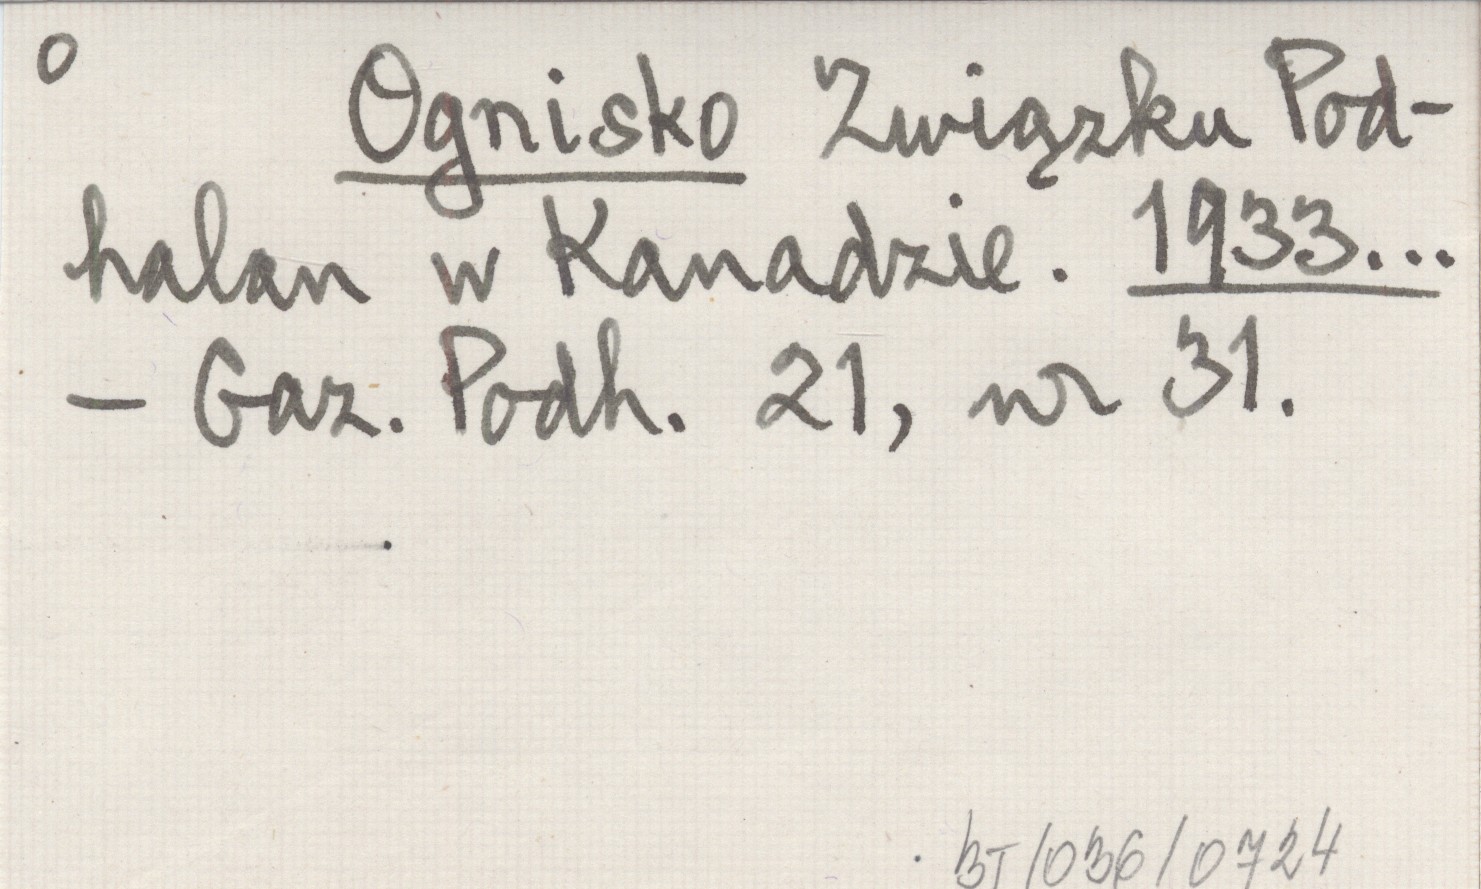 o Ognisko Związku Pod-
halan w Kanadzie. 1933...
- Gaz. Podh. 21, nr 31.
BT/036/0724